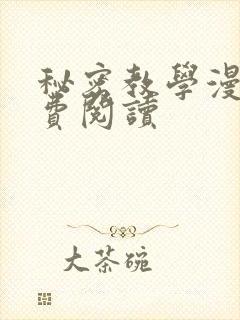 秘密教學漫
費閱讀
大茶碗